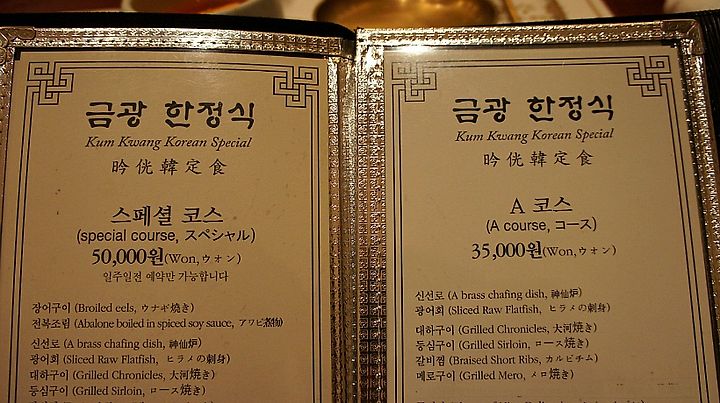 금광 한정식
Kum Kwang Korean Special
昑侊韓定食
스페셜 코스
(special course, スペシャル)
50,000원(Won,ウォン)
일주일전 예약만 가능합니다
장어구이 (Broiled eels, ウナギ焼き)
전복조림 (Abalone boiled in spiced soy sauce, アワビ
신선로 (A brass chafing dish, 神仙炉)
광어회 (Sliced Raw Flatfish, ヒラメの刺身)
대하구이 (Grilled Chronicles, 大河焼き)
등심구이 (Grilled Sirloin, ロース焼き)
금광 한정식
Kum Kwang Korean Special
昑侊韓定食
A 코스
(A course, コース)
35,000원(Won,ウォン)
신선로 (A brass chafing dish, 神仙炉)
광어회 (Sliced Raw Flatfish, ヒラメの刺身)
대하구이 (Grilled Chronicles, 大河焼き)
등심구이 (Grilled Sirloin, ロース焼き)
갈비찜 (Braised Short Ribs, カルビチム)
메로구이 (Grilled Mero, メロ焼き)